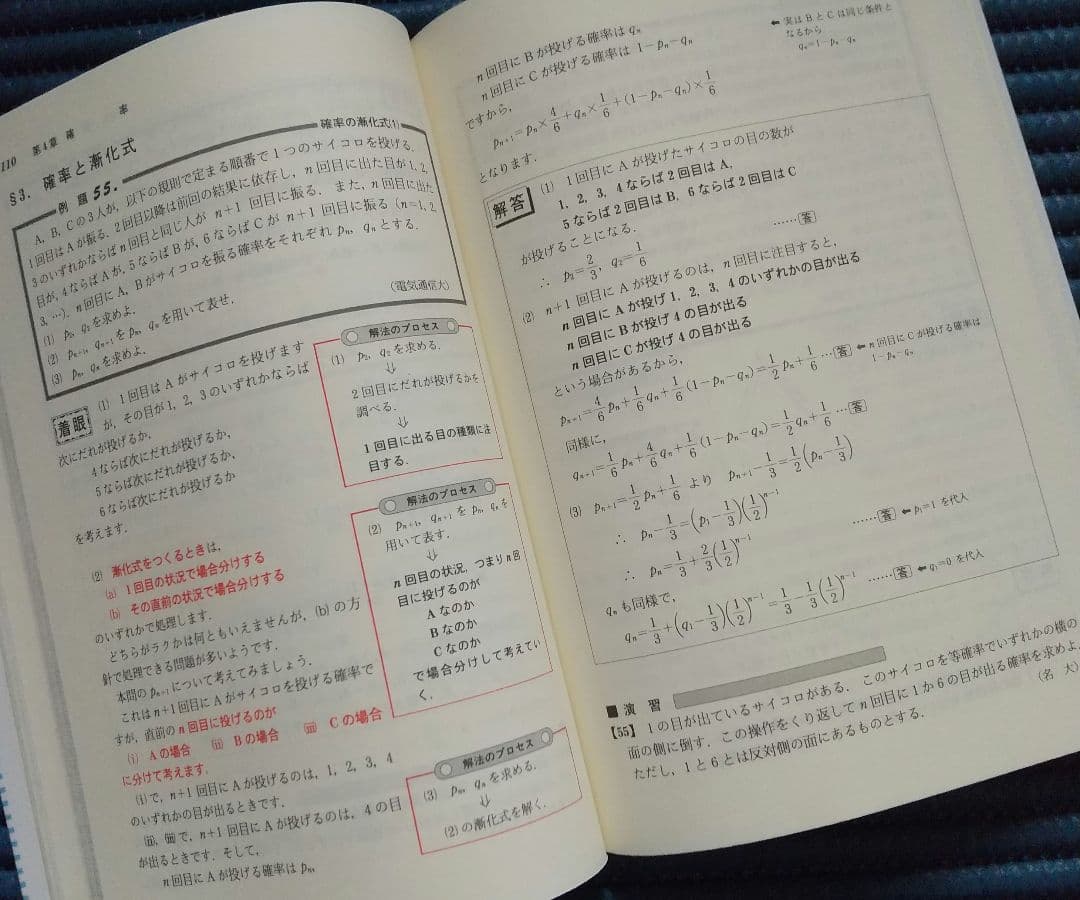 110 第4章 確 率
§3. 確率と漸化式
例題 55.
確率の漸化式(1)
A, B, Cの3人が, 以下の規則で定まる順番で1つのサイコロを投げる.
1回目はAが振る. 2回目以降は前回の結果に依存し, n回目に出た目が1, 2,
3のいずれかならばn回目と同じ人が n+1 回目に振る. また, n回目に出た
目が, 4ならばAが, 5ならばBが, 6ならばCが n+1 回目に振る (n=1, 2,
3, …). n回目にA, Bがサイコロを振る確率をそれぞれ pₙ, qₙ とする.
(1) p₂, q₂ を求めよ.
(2) pₙ₊₁, qₙ₊₁ を pₙ, qₙ を用いて表せ.
(3) pₙ, qₙ を求めよ.
(電気通信大)
着眼
(1) 1回目はAがサイコロを投げます
が, その目が1, 2, 3のいずれかならば
次にだれが投げるか,
4ならば次にだれが投げるか,
5ならば次にだれが投げるか,
6ならば次にだれが投げるか
を考えます.
(2) 漸化式をつくるときは,
(a) 1回目の状況で場合分けする
(b) その直前の状況で場合分けする
のいずれかで処理します.
どちらがラクかは何ともいえませんが, (b)の方
針で処理できる問題が多いようです.
本問の pₙ₊₁ について考えてみましょう.
これは n+1 回目にAがサイコロを投げる確率で
すが, 直前のn回目に投げるのが
(ⅰ) Aの場合 (ⅱ) Bの場合 (ⅲ) Cの場合
に分けて考えます.
(ⅰ)で, n+1 回目にAが投げるのは, 1, 2, 3, 4
のいずれかの目が出るときです.
(ⅱ), (ⅲ)で, n+1 回目にAが投げるのは, 4の目
が出るときです. そして,
n回目にAが投げる確率は pₙ,
解法のプロセス
(1) p₂, q₂ を求める.
⇓
2回目にだれが投げるかを
調べる.
⇓
1回目に出る目の種類に注
目する.
解法のプロセス
(2) pₙ₊₁, qₙ₊₁ を pₙ, qₙ を
用いて表す.
⇓
n回目の状況, つまりn回
目に投げるのが
Aなのか
Bなのか
Cなのか
で場合分けして考えてい
く.
解法のプロセス
(3) pₙ, qₙ を求める.
⇓
(2)の漸化式を解く.
n回目にBが投げる確率は qₙ
n回目にCが投げる確率は 1−pₙ−qₙ
← 実はBとCは同じ条件と
なるから
qₙ=1−pₙ−qₙ
ですから,
pₙ₊₁=pₙ×4/6+qₙ×1/6+(1−pₙ−qₙ)×1/6
となります.
解答
(1) 1回目にAが投げたサイコロの目の数が
1, 2, 3, 4ならば2回目はA,
5ならば2回目はB, 6ならば2回目はC
が投げることになる.
∴ p₂=2/3, q₂=1/6 ……答
(2) n+1 回目にAが投げるのは, n回目に注目すると,
n回目にAが投げ1, 2, 3, 4のいずれかの目が出る
n回目にBが投げ4の目が出る
n回目にCが投げ4の目が出る
という場合があるから,
pₙ₊₁=4/6pₙ+1/6qₙ+1/6(1−pₙ−qₙ)=1/2pₙ+1/6 …答 ← n回目にCが投げる確率は
1−pₙ−qₙ
同様に,
qₙ₊₁=1/6pₙ+4/6qₙ+1/6(1−pₙ−qₙ)=1/2qₙ+1/6 …答
(3) pₙ₊₁=1/2pₙ+1/6 より pₙ₊₁−1/3=1/2(pₙ−1/3)
∴ pₙ−1/3=(p₁−1/3)(1/2)ⁿ⁻¹
∴ pₙ=1/3+2/3(1/2)ⁿ⁻¹ ……答 ← p₁=1 を代入
qₙ も同様で,
qₙ=1/3+(q₁−1/3)(1/2)ⁿ⁻¹=1/3−1/3(1/2)ⁿ⁻¹ ……答 ← q₁=0 を代入
■ 演 習
【55】 1の目が出ているサイコロがある. このサイコロを等確率でいずれかの横の
面の側に倒す. この操作をくり返してn回目に1か6の目が出る確率を求めよ.
ただし, 1と6とは反対側の面にあるものとする.
(名 大)